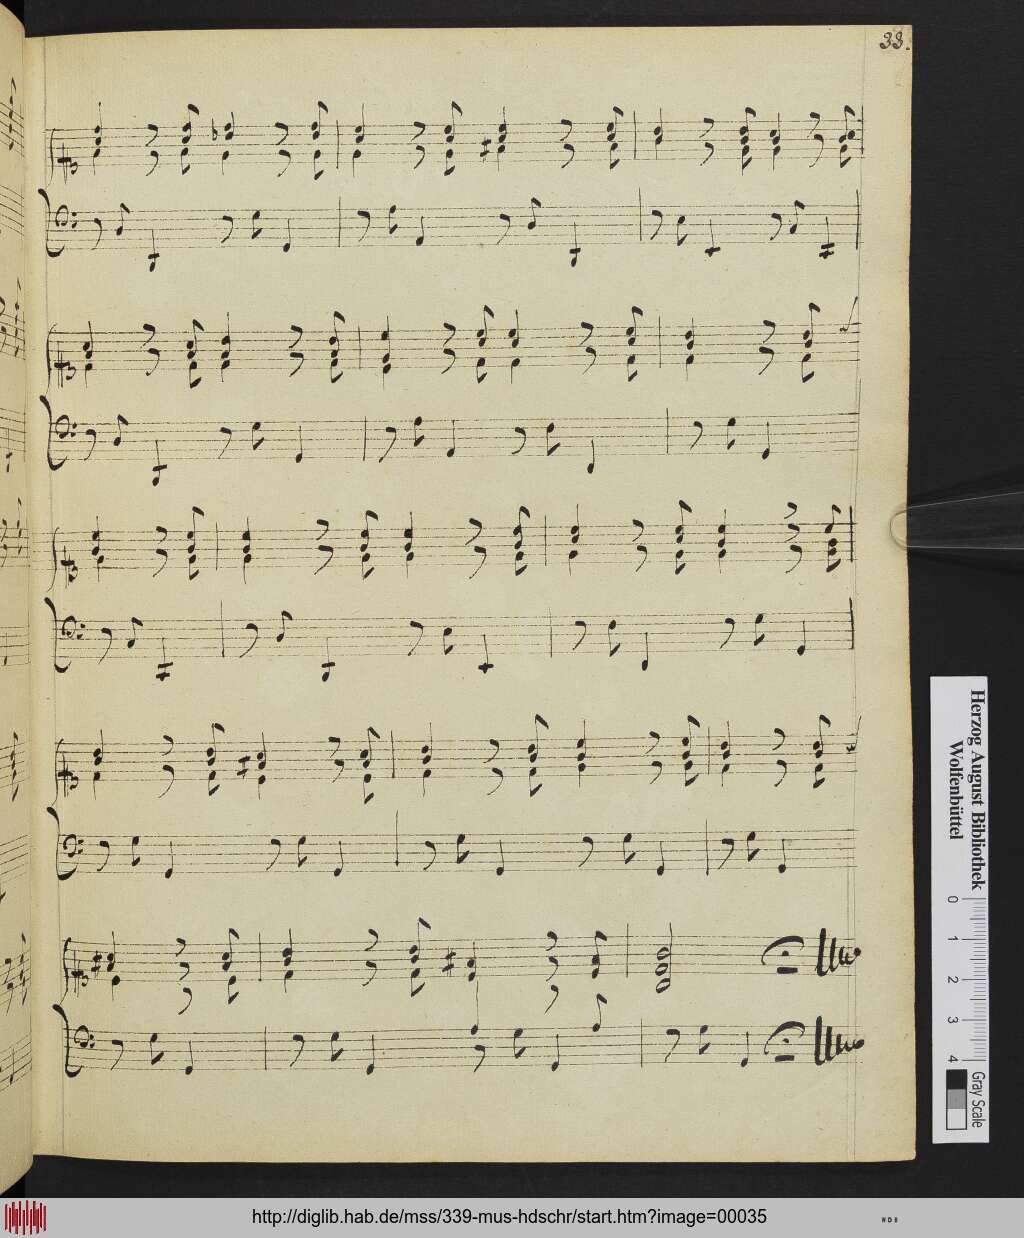 33.
Herzog August Bibliothek
Wolfenbüttel
0 1 2 3 4
Gray Scale
http://diglib.hab.de/mss/339-mus-hdschr/start.htm?image=00035